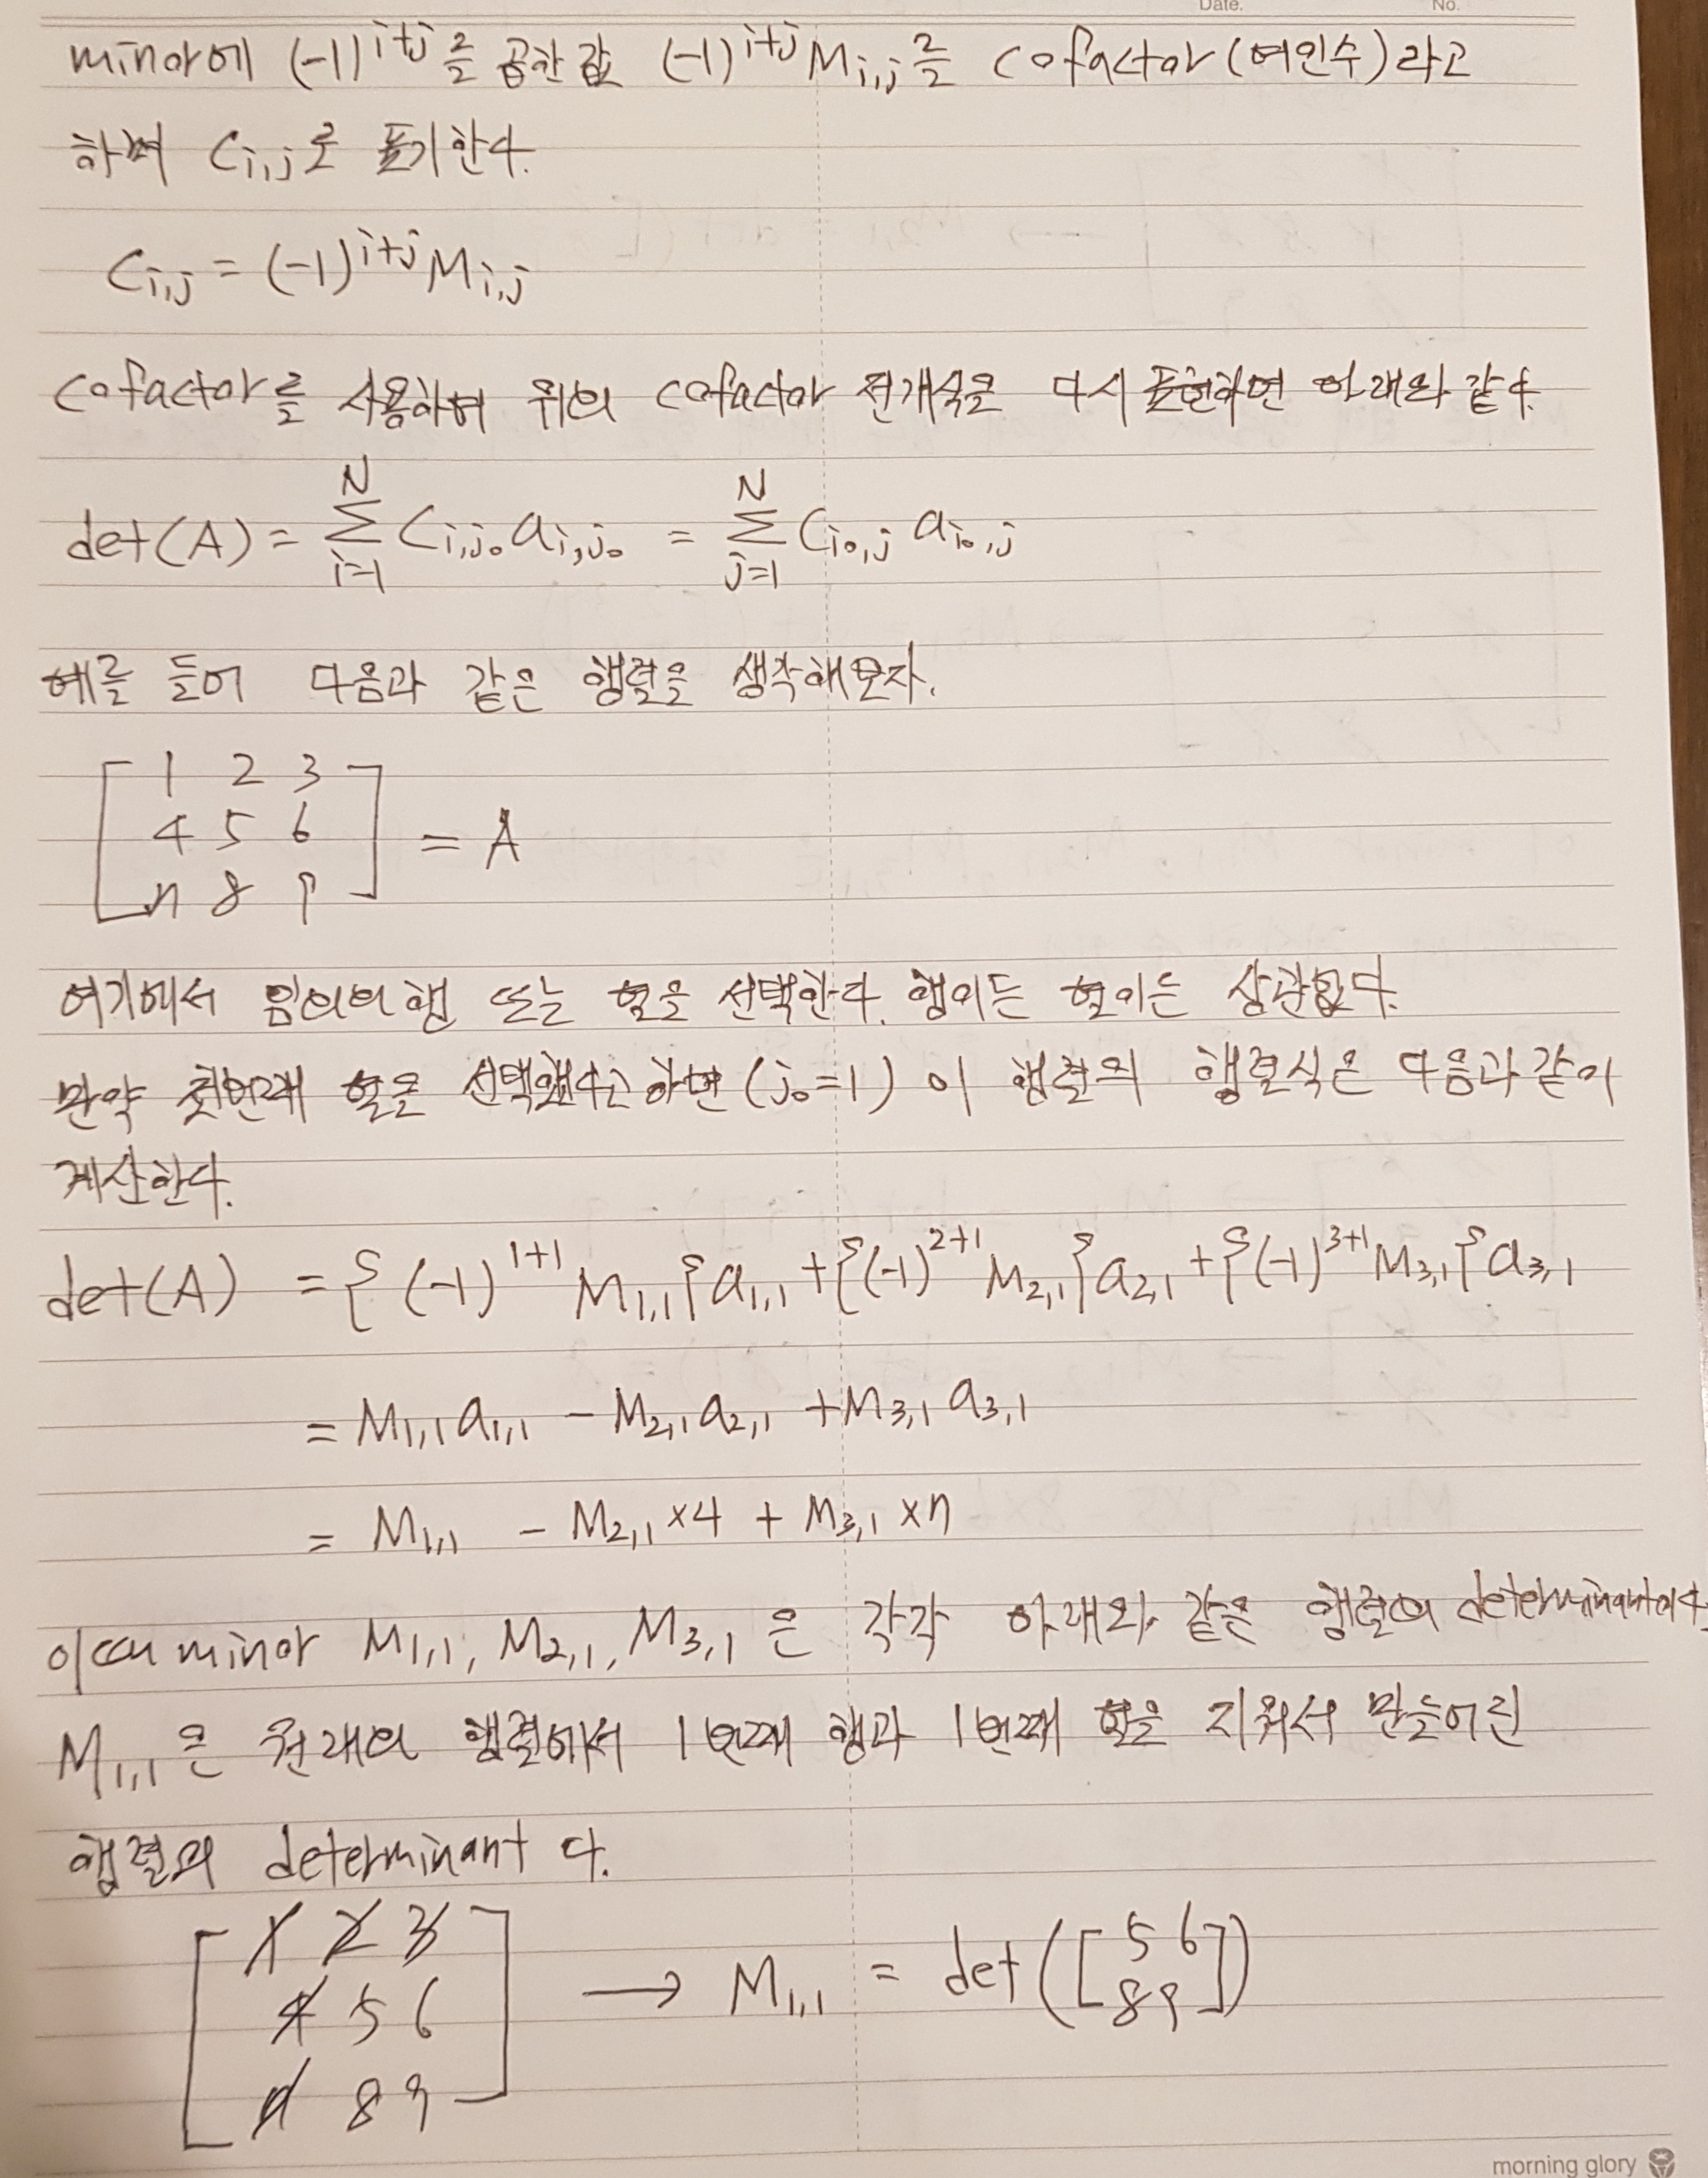 Date. No.
minor에 (-1)^{i+j}를 곱한 값 (-1)^{i+j}M_{i,j}를 cofactor(여인수)라고
하며 C_{i,j}로 표기한다.
C_{i,j} = (-1)^{i+j}M_{i,j}
cofactor를 사용하여 위의 cofactor 전개식을 다시 표현하면 아래와 같다.
det(A) = \sum_{i=1}^{N} C_{i,j_0} a_{i,j_0} = \sum_{j=1}^{N} C_{i_0,j} a_{i_0,j}
예를 들어 다음과 같은 행렬을 생각해보자.
[ 1 2 3
4 5 6 = A
7 8 9 ]
여기에서 임의의 행 또는 열을 선택한다. 행이든 열이든 상관없다.
만약 첫번째 열을 선택했다고 하면 (j_0=1) 이 행렬의 행렬식은 다음과 같이
계산한다.
det(A) = {(-1)^{1+1} M_{1,1}}a_{1,1} + {(-1)^{2+1} M_{2,1}}a_{2,1} + {(-1)^{3+1} M_{3,1}}a_{3,1}
= M_{1,1}a_{1,1} - M_{2,1}a_{2,1} + M_{3,1}a_{3,1}
= M_{1,1} - M_{2,1}×4 + M_{3,1}×7
이때 minor M_{1,1}, M_{2,1}, M_{3,1}은 각각 아래와 같은 행렬의 determinant이다.
M_{1,1}은 원래의 행렬에서 1번째 행과 1번째 열을 지워서 만들어린
행렬의 determinant 다.
[ 1 2 3
4 5 6 → M_{1,1} = det([ 5 6
8 9 ])
7 8 9 ]
morning glory